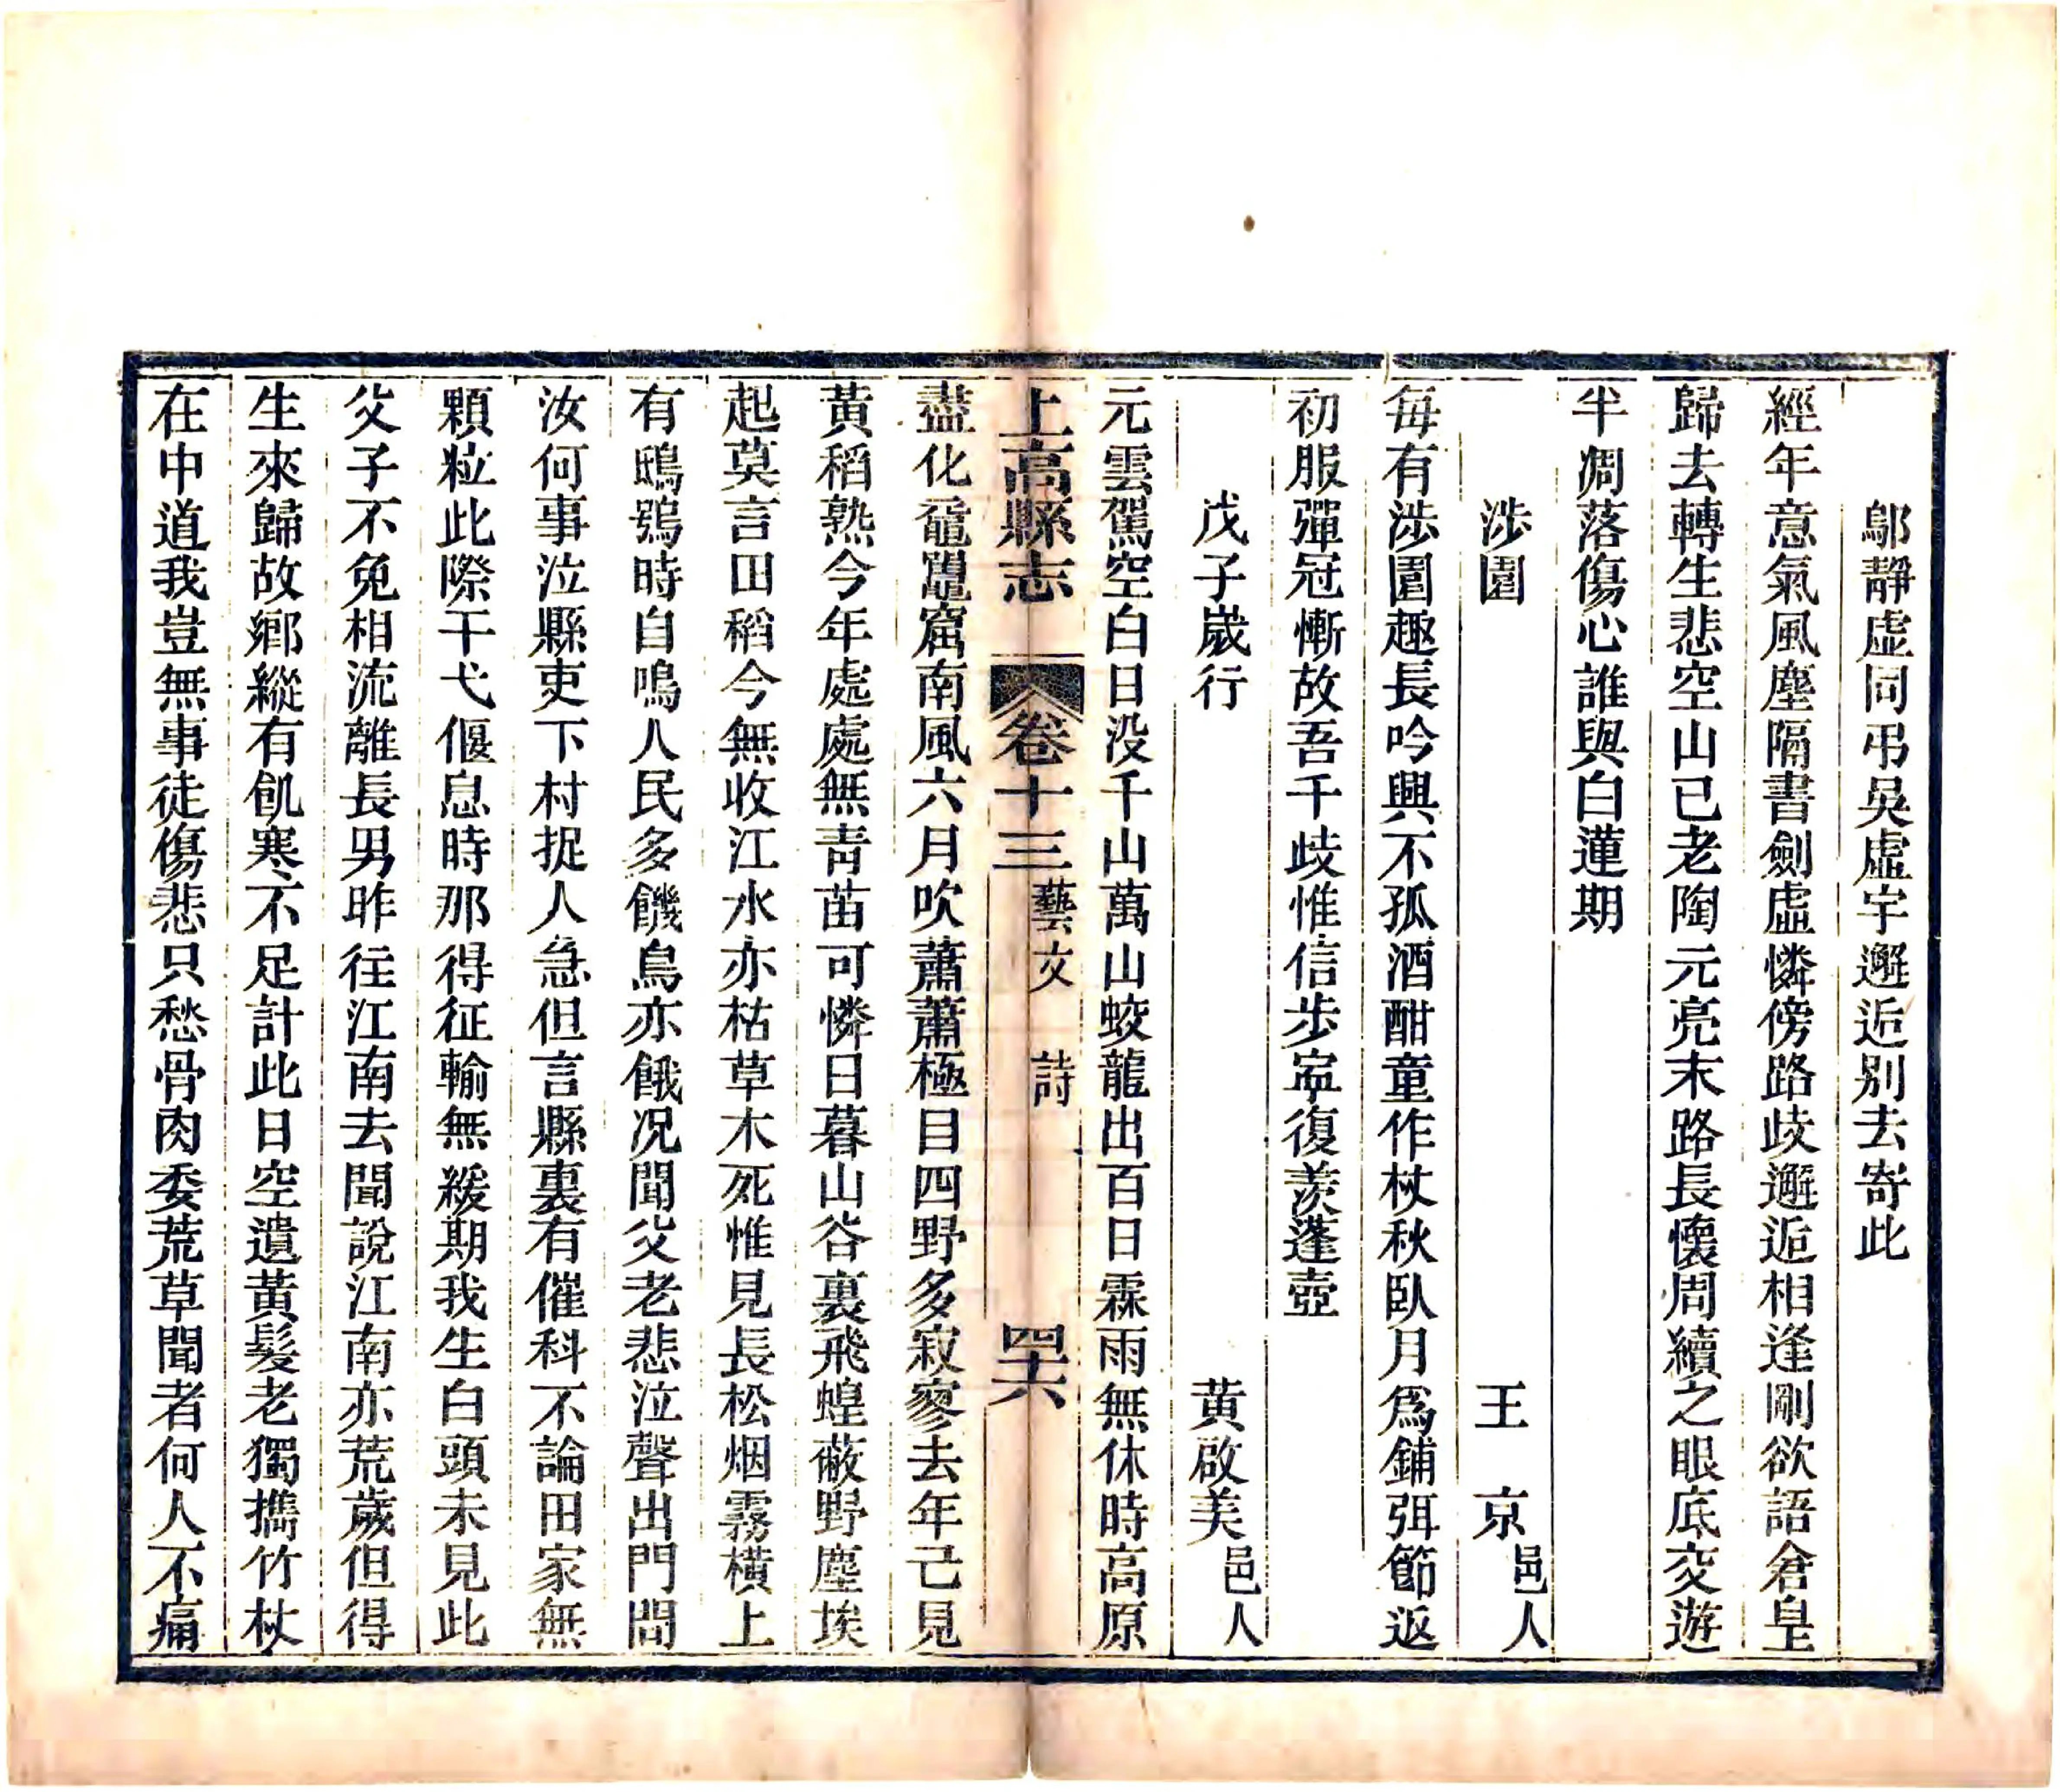 鄔靜虛同弔吳虛宇邂逅別去寄此
經年意氣風塵隔書劍虛憐傍路歧邂逅相逢剛欲語倉皇
歸去轉生悲空山已老陶元亮末路長懷周續之眼底交遊
半凋落傷心誰與白蓮期
涉園　王　京邑人
每有涉園趣長吟興不孤酒酣童作杖秋臥月爲鋪弭節返
初服彈冠慚故吾千歧惟信步寍復羨蓬壺
戊子嵗行　黄啟美邑人
元雲駕空白日没千山萬山蛟龍出百日霖雨無休時高原
上高縣志　卷十三　藝文　詩　四十六
盡化黿鼉窟南風六月吹蕭蕭極目四野多寂寥去年已見
黃稻熟今年處處無靑苗可憐日暮山谷裏飛蝗蔽野塵埃
起莫言田稻今無收江水亦枯草木死惟見長松烟霧橫上
有鴟鴞時自鳴人民多饑鳥亦餓况聞父老悲泣聲出門問
汝何事泣縣吏下村捉人急但言縣裏有催科不論田家無
顆粒此際干弋偃息時那得征輸無緩期我生白頭未見此
父子不免相流離長男昨往江南去聞說江南亦荒歲但得
生來歸故鄉縱有飢寒不足計此日空遺黃髮老獨攜竹杖
在中道我豈無事徒傷悲只愁骨肉委荒草聞者何人不痛